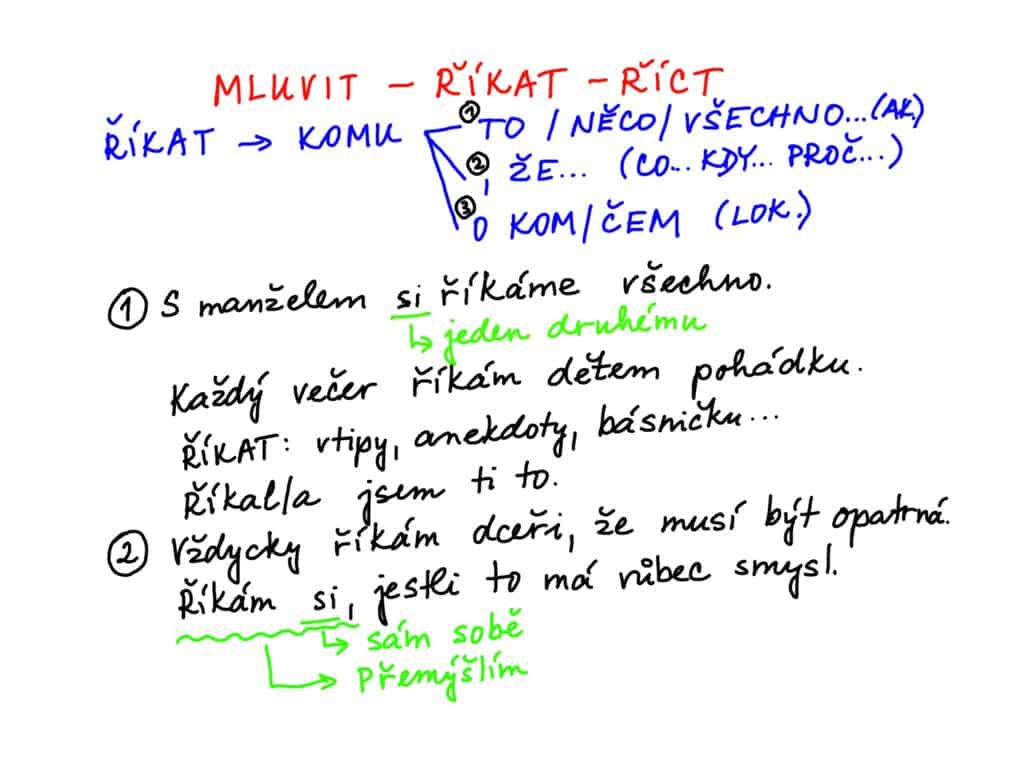 MLUVIT – ŘÍKAT – ŘÍCT
ŘÍKAT → KOMU ① TO / NĚCO / VŠECHNO... (AK.)
② , ŽE... (CO... KDY... PROČ...)
③ O KOM/ČEM (LOK.)
① S manželem si říkáme všechno.
↳ jeden druhému
Každý večer říkám dětem pohádku.
ŘÍKAT: vtipy, anekdoty, básničku...
Říkal/a jsem ti to.
② Vždycky říkám dceři, že musí být opatrná.
Říkám si, jestli to má vůbec smysl.
↳ sám sobě
→ Přemýšlím